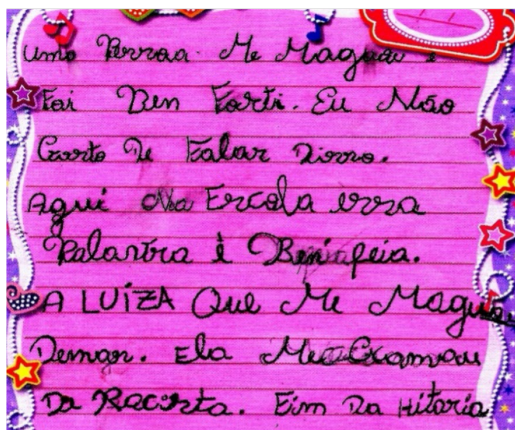 Uma Perroa Me Maguau e
Foi Ben Forti. Eu Não
Gosto De Falar Disso.
Aqui Na Escola essa
Palavra é Bem feia.
A LUIZA Que Me Maguau
Demon. Ela Me Examou
Da Racista. Fim Da Hitoria